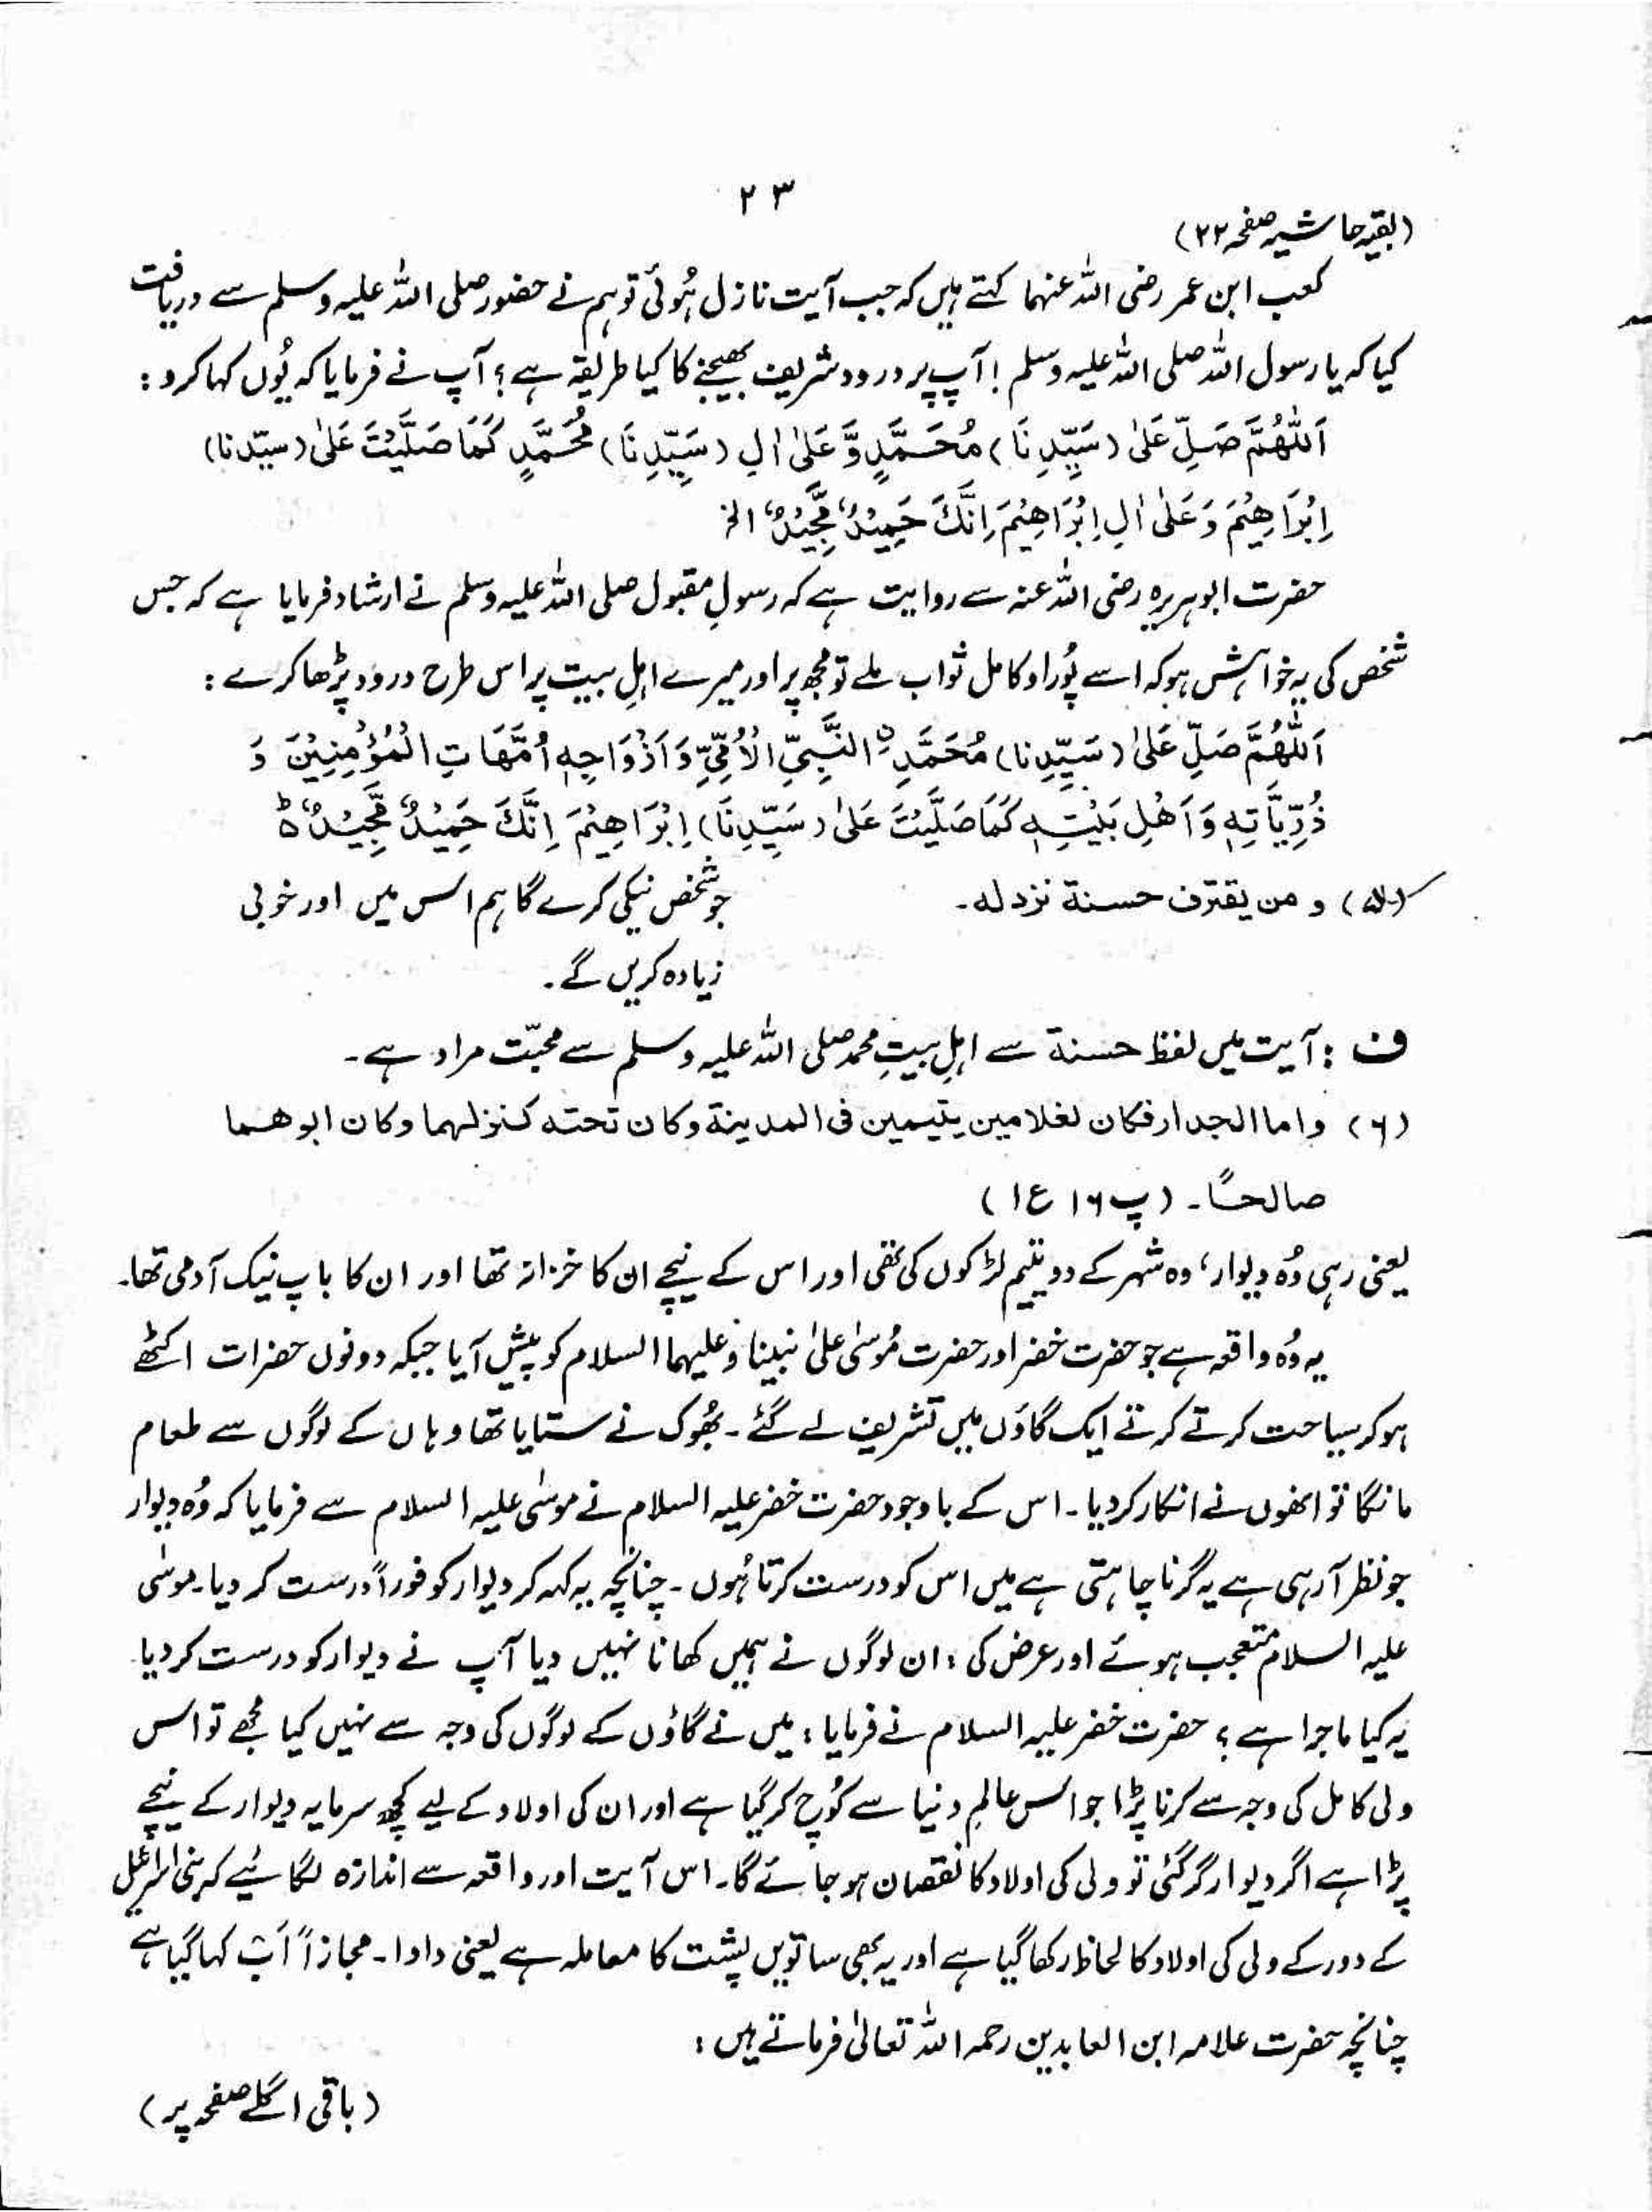 ۲۳
(بقیہ حاشیہ صفحہ ۲۲)
کعب ابن عمر رضی اللہ عنہما کہتے ہیں کہ جب آیت نازل ہُوئی تو ہم نے حضور صلی اللہ علیہ وسلم سے دریافت
کیا کہ یا رسول اللہ صلی اللہ علیہ وسلم ! آپ پر درود شریف بھیجنے کا کیا طریقہ ہے ؟ آپ نے فرمایا کہ یُوں کہا کرو :
اَللّٰهُمَّ صَلِّ عَلیٰ (سَیِّدِنَا) مُحَمَّدٍ وَّ عَلیٰ اٰلِ (سَیِّدِنَا) مُحَمَّدٍ کَمَا صَلَّیْتَ عَلیٰ (سیّدنا)
اِبْرَاهِیْمَ وَعَلیٰ اٰلِ اِبْرَاهِیْمَ اِنَّكَ حَمِیْدٌ مَّجِیْدٌ الخ
حضرت ابوہریرہ رضی اللہ عنہ سے روایت ہے کہ رسولِ مقبول صلی اللہ علیہ وسلم نے ارشاد فرمایا ہے کہ جس
شخص کی یہ خواہش ہو کہ اسے پُورا و کامل ثواب ملے تو مجھ پر اور میرے اہلِ بیت پر اس طرح درود پڑھا کرے :
اَللّٰهُمَّ صَلِّ عَلیٰ (سَیِّدِنا) مُحَمَّدِ نِ النَّبِیِّ الْاُمِّیِّ وَاَزْوَاجِهٖ اُمَّهَاتِ الْمُؤْمِنِیْنَ وَ
ذُرِّیَّاتِهٖ وَاَهْلِ بَیْتِهٖ کَمَا صَلَّیْتَ عَلیٰ (سَیِّدِنَا) اِبْرَاهِیْمَ اِنَّكَ حَمِیْدٌ مَّجِیْدٌ ط
(۵) و من یقترف حسنة نزد له۔ جو شخص نیکی کرے گا ہم اس میں اور خوبی
زیادہ کریں گے۔
ف : آیت میں لفظ حسنة سے اہلِ بیتِ محمد صلی اللہ علیہ وسلم سے محبّت مراد ہے۔
(۶) واما الجدار فکان لغلامین یتیمین فی المدینة وکان تحته کنز لهما وکان ابوهما
صالحًا۔ (پ ۱۶ ع ۱)
یعنی رہی وُہ دیوار، وہ شہر کے دو یتیم لڑکوں کی تھی اور اس کے نیچے ان کا خزانہ تھا اور ان کا باپ نیک آدمی تھا۔
یہ وُہ واقعہ ہے جو حضرت خضر اور حضرت مُوسٰی علیٰ نبینا وعلیہما السلام کو پیش آیا جبکہ دونوں حضرات اکٹھے
ہو کر سیاحت کرتے کرتے ایک گاؤں میں تشریف لے گئے۔ بھُوک نے ستایا تھا وہاں کے لوگوں سے طعام
مانگا تو انھوں نے انکار کر دیا۔ اس کے باوجود حضرت خضر علیہ السلام نے موسٰی علیہ السلام سے فرمایا کہ وُہ دیوار
جو نظر آ رہی ہے یہ گرنا چاہتی ہے میں اس کو درست کرتا ہُوں۔ چنانچہ یہ کہہ کر دیوار کو فوراً درست کر دیا۔ موسٰی
علیہ السلام متعجب ہوئے اور عرض کی : ان لوگوں نے ہمیں کھانا نہیں دیا آپ نے دیوار کو درست کر دیا
یہ کیا ماجرا ہے ؟ حضرت خضر علیہ السلام نے فرمایا : میں نے گاؤں کے لوگوں کی وجہ سے نہیں کیا مجھے تو اس
ولی کامل کی وجہ سے کرنا پڑا جو اس عالمِ دنیا سے کُوچ کر گیا ہے اور ان کی اولاد کے لیے کچھ سرمایہ دیوار کے نیچے
پڑا ہے اگر دیوار گر گئی تو ولی کی اولاد کا نقصان ہو جائے گا۔ اس آیت اور واقعہ سے اندازہ لگائیے کہ بنی اسرائیل
کے دور کے ولی کی اولاد کا لحاظ رکھا گیا ہے اور یہ بھی ساتویں پشت کا معاملہ ہے یعنی دادا۔ مجازاً اَبْ کہا گیا ہے
چنانچہ حضرت علامہ ابن العابدین رحمہ اللہ تعالیٰ فرماتے ہیں :
(باقی اگلے صفحہ پر)